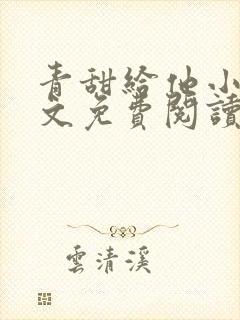 青甜給他小
文免費閱讀
雲清溪